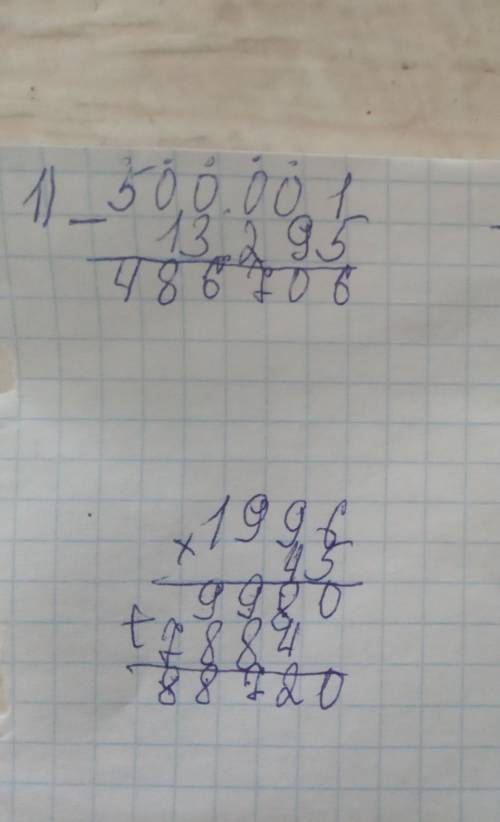 1) - 500.001
13.295
486.706
× 1996
45
9980
+ 7884
88720